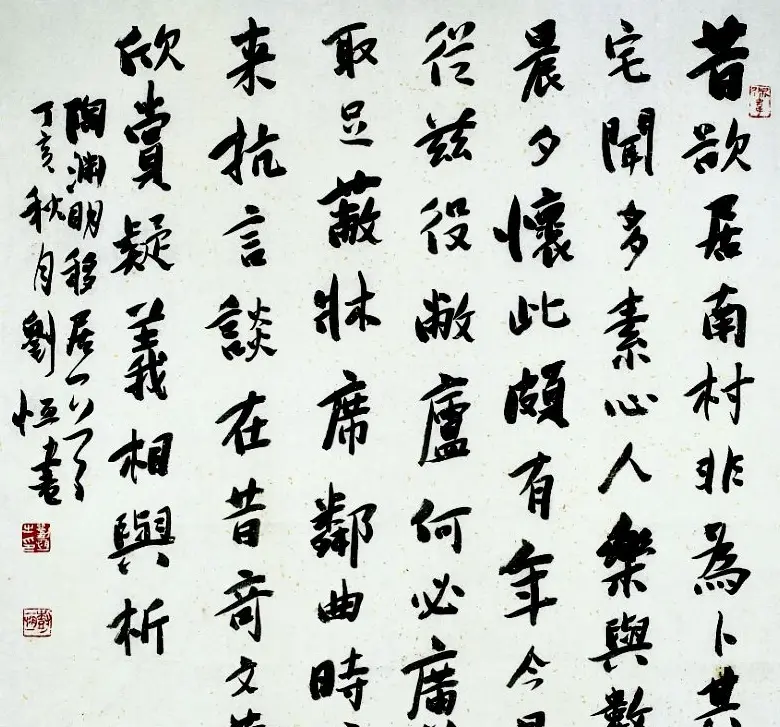 昔欲居南村非為卜其
宅聞多素心人樂與數
晨夕懷此頗有年今
從茲役敝廬何必廣
取足蔽牀席鄰曲時
来抗言談在昔奇文
欣賞疑義相與析
陶渊明移居
丁亥秋月劉恒書